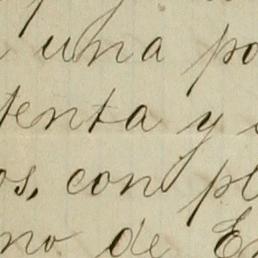 una po
tenta y
os, con pl
no de En